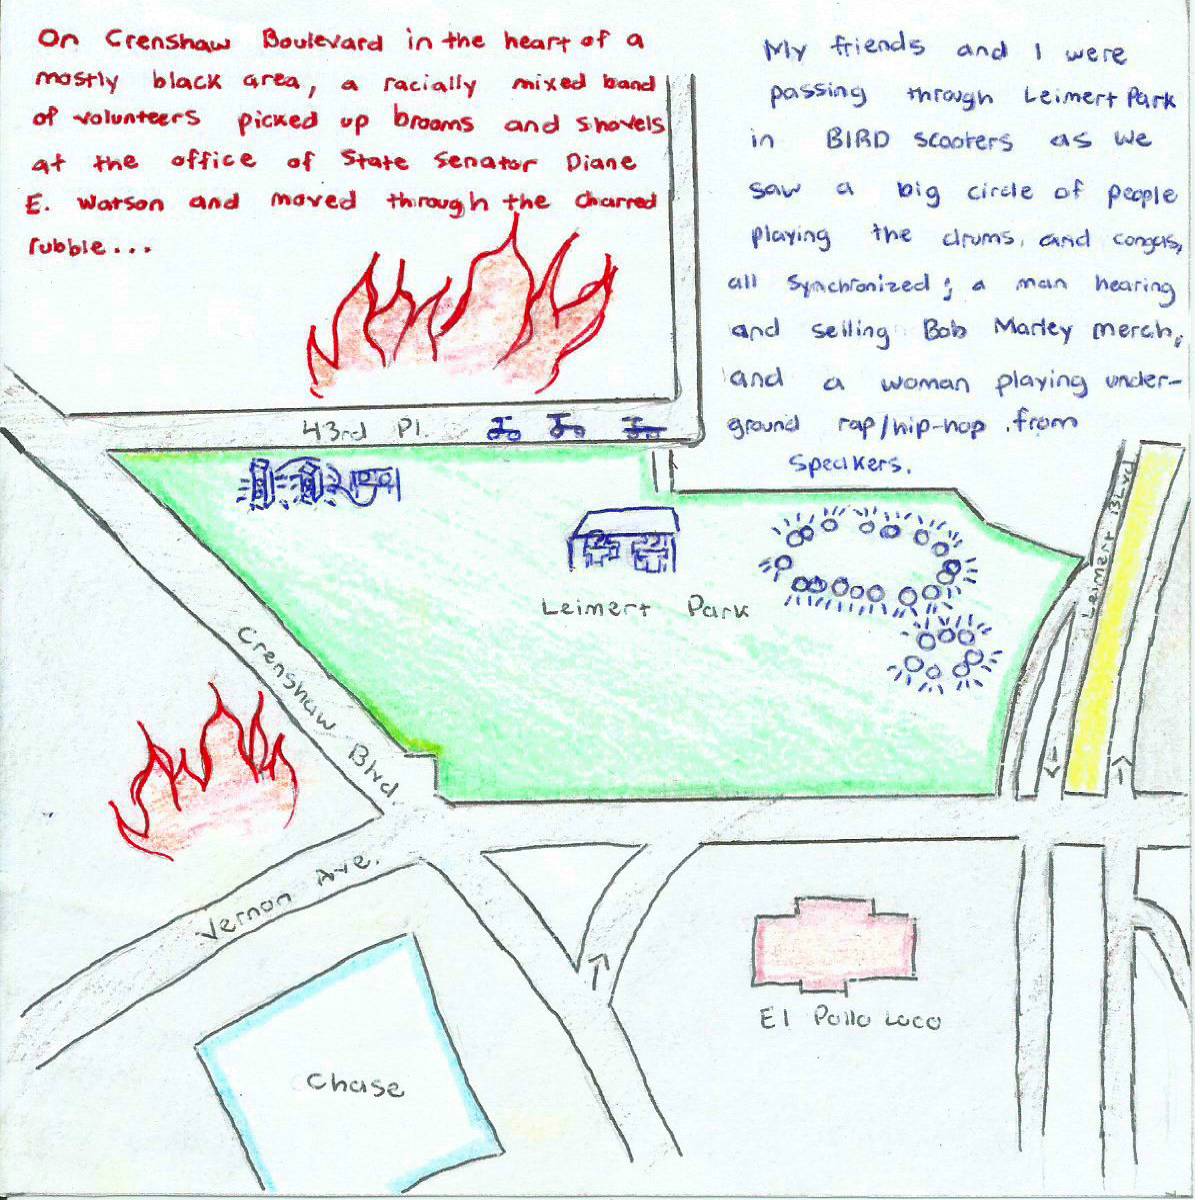 On Crenshaw Boulevard in the heart of a
mostly black area, a racially mixed band
of volunteers picked up brooms and shovels
at the office of State Senator Diane
E. Watson and moved through the charred
rubble...
My friends and I were
passing through Leimert Park
in BIRD scooters as we
saw a big circle of people
playing the drums, and congas,
all synchronized; a man hearing
and selling Bob Marley merch,
and a woman playing under-
ground rap/hip-hop from
speakers.
43rd Pl.
Leimert Blvd
Leimert Park
Crenshaw Blvd.
Vernon Ave.
El Pollo Loco
Chase